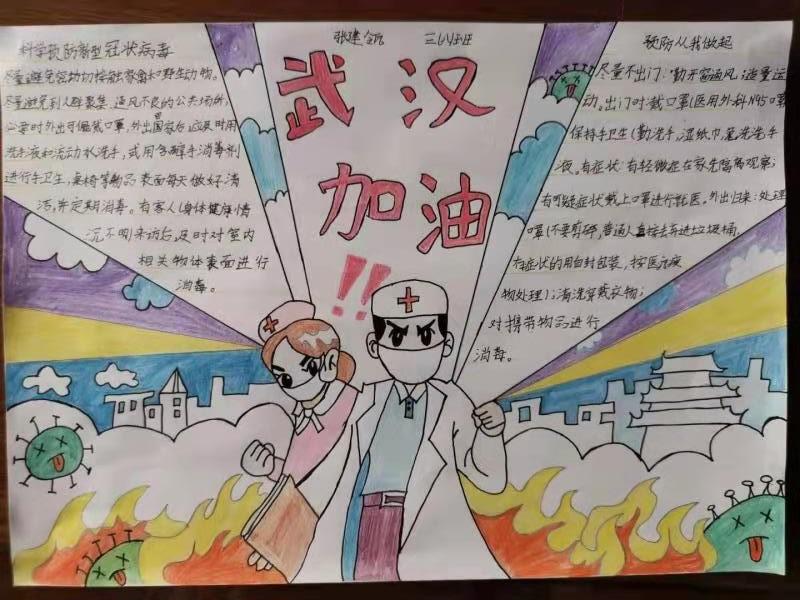 科学预防新型冠状病毒
尽量避免密切接触家禽和野生动物。
尽量避免到人群聚集、通风不良的公共场所,
必要时外出可佩戴口罩,外出回家后应及时用
洗手液和流动水洗手,或用含醇手消毒剂
进行手卫生,桌椅等物品表面每天做好清
洁,并定期消毒。有客人(身体健康情
况不明)来访后,及时对室内
相关物体表面进行
消毒。
武汉
加油
!!
张建
预防从我做起
尽量不出门:勤开窗通风,适量运
动。出门时:戴口罩(医用外科N95口罩
保持手卫生(勤洗手,湿纸巾,免洗洗手
液,有症状:有轻微症在家先隔离观察;
有可疑症状戴上口罩进行就医。外出归来:处理
口罩(不要剪碎,普通人直接丢弃进垃圾桶,
有症状的用自封包装,按医疗废
物处理);清洗穿戴衣物;
对携带物品进行
消毒。